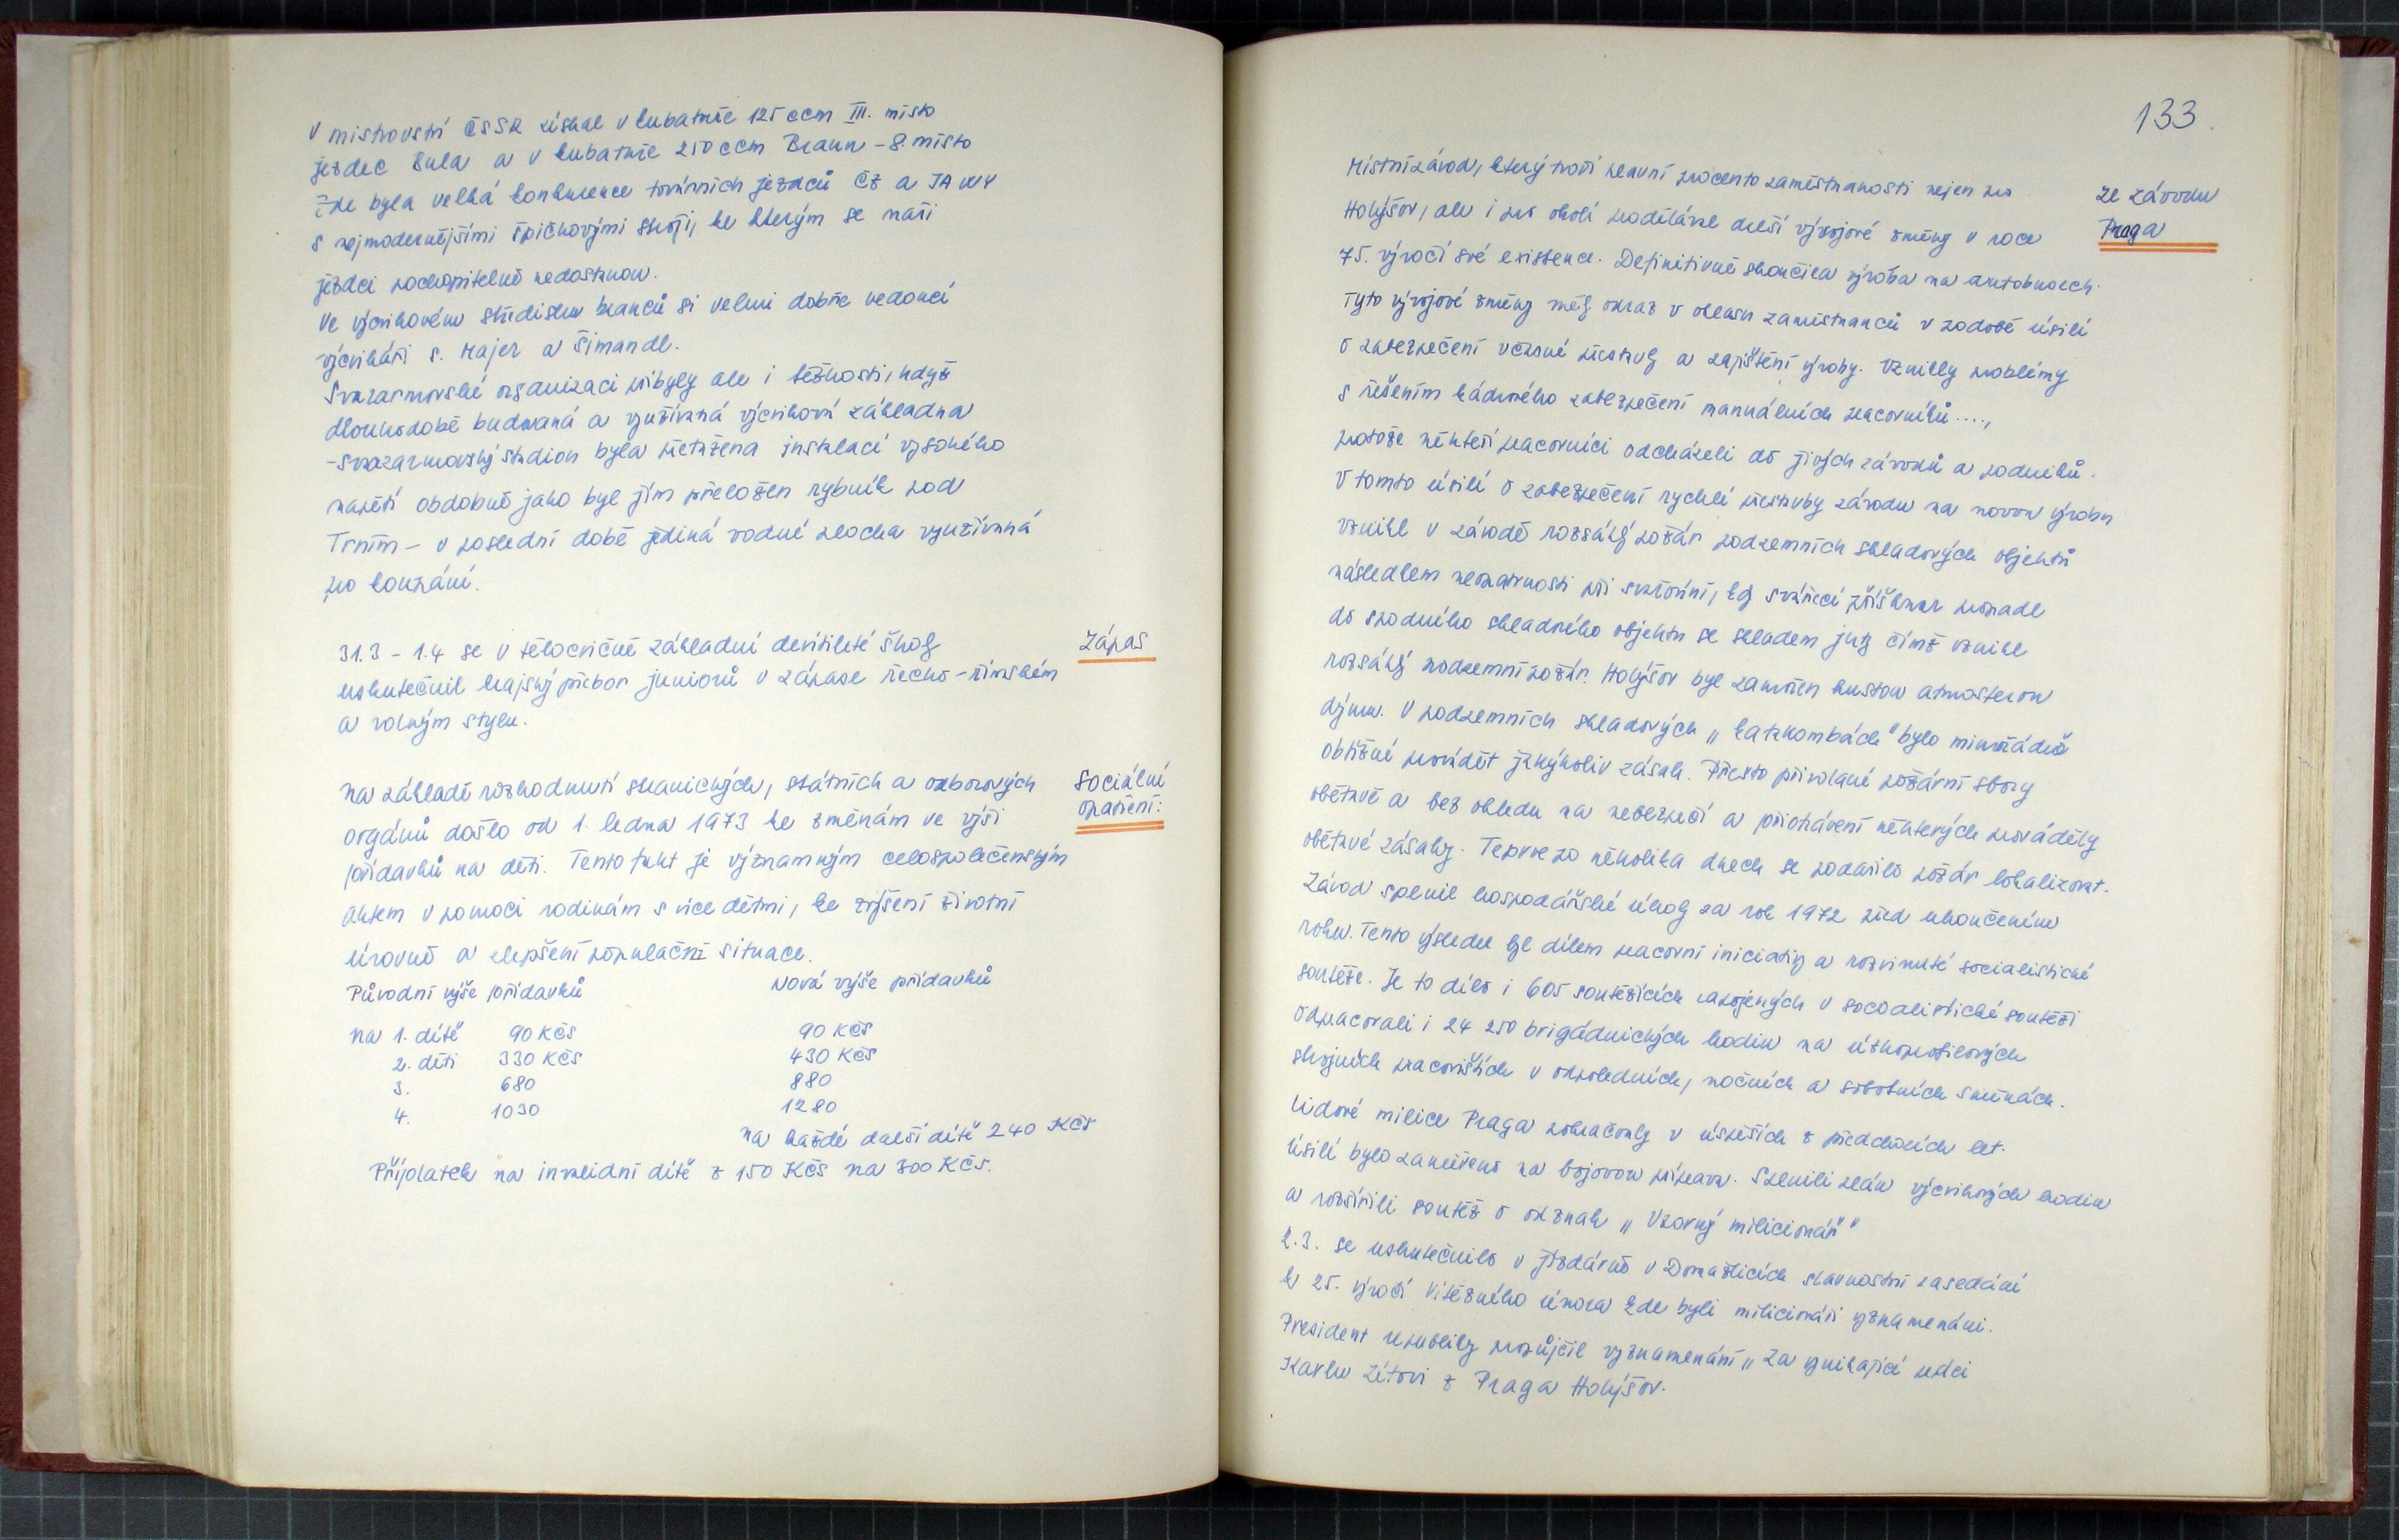 V mistrovství ČSSR získal v kubatuře 125 ccm III. místo
jezdec Bula a v kubatuře 250 ccm Braun - 8. místo
zde byla velká konkurence továrních jezdců ČZ a JAWY
s nejmodernějšími špičkovými stroji, ke kterým se naši
jezdci pochopitelně nedostanou.
Ve výcvikovém středisku branců si velmi dobře vedoucí
výcvikáři s. Majer a Šimandl.
Svazarmovské organizaci přibyly ale i těžkosti, když
dlouhodobě budovaná a využívaná výcviková základna
- svazarmovský stadion byla přetížena instalací vysokého
napětí obdobně jako byl jím přeložen rybník pod
Trním - v poslední době jediná vodní plocha využívaná
pro koupání.
31.3 - 1.4 se v tělocvičně základní devítileté školy
Zápas
uskutečnil krajský přebor juniorů v zápase řecko-římském
a volným stylu.
Na základě rozhodnutí stranických, státních a odborových
sociální
opatření:
orgánů došlo od 1. ledna 1973 ke změnám ve výši
přídavků na děti. Tento fakt je významným celospolečenským
aktem v pomoci rodinám s více dětmi, ke zvýšení životní
úrovně a zlepšení populační situace.
Původní výše přídavků Nová výše přídavků
na 1. dítě 90 Kčs 90 Kčs
2. děti 330 Kčs 430 Kčs
3. 680 880
4. 1030 1280
na každé další dítě 240 Kčs
Příplatek na invalidní dítě z 150 Kčs na 300 Kčs.
133.
Místní závod, který tvoří hlavní procento zaměstnanosti nejen pro
ze závodu
Praga
Holýšov, ale i pro okolí prodělával další vývojové změny v roce
75. výročí své existence. Definitivně skončila výroba na autobusech.
Tyto vývojové změny měly odraz v ohlasu zaměstnanců v podobě úsilí
o zabezpečení včasné přestavby a zajištění výroby. Vznikly problémy
s řešením kádrového zabezpečení manuálních pracovníků ....,
protože někteří pracovníci odcházeli do jiných závodů a podniků.
V tomto úsilí o zabezpečení rychlé přestavby závodu na novou výrobu
vznikl v závodě rozsáhlý požár podzemních skladových objektů
následkem neopatrnosti při svařování, kdy svářecí příškvar propadl
do spodního skladového objektu se skladem juty čímž vznikl
rozsáhlý podzemní požár. Holýšov byl zamořen hustou atmosferou
dýmu. V podzemních skladových „katakombách" bylo mimořádně
obtížné provádět jakýkoliv zásah. Přesto přivolané požární sbory
obětavě a bez ohledu na nebezpečí a přiotrávení některých prováděly
obětavé zásahy. Teprve po několika dnech se podařilo požár lokalizovat.
Závod splnil hospodářské úkoly za rok 1972 před ukončením
roku. Tento výsledek byl dílem pracovní iniciativy a rozvinuté socialistické
soutěže. Je to dílo i 605 soutěžících zapojených v socoalistické soutěži
odpracovali i 24 250 brigádnických hodin na úzkoprofilových
strojních pracovištích v odpoledních, nočních a sobotních směnách.
Lidové milice Praga pokračovaly v úspěších z předchozích let.
Úsilí bylo zaměřeno na bojovou přípravu. Splnili plán výcvikových hodin
a rozšířili soutěž o odznak „Vzorný milicionář"
2.3. se uskutečnilo v jízdárně v Domažlicích slavnostní zasedání
k 25. výročí Vítězného února kde byli milicionáři vyznamenáni.
President republiky propůjčil vyznamenání „Za vynikající práci
Karlu Zítovi z Praga Holýšov.